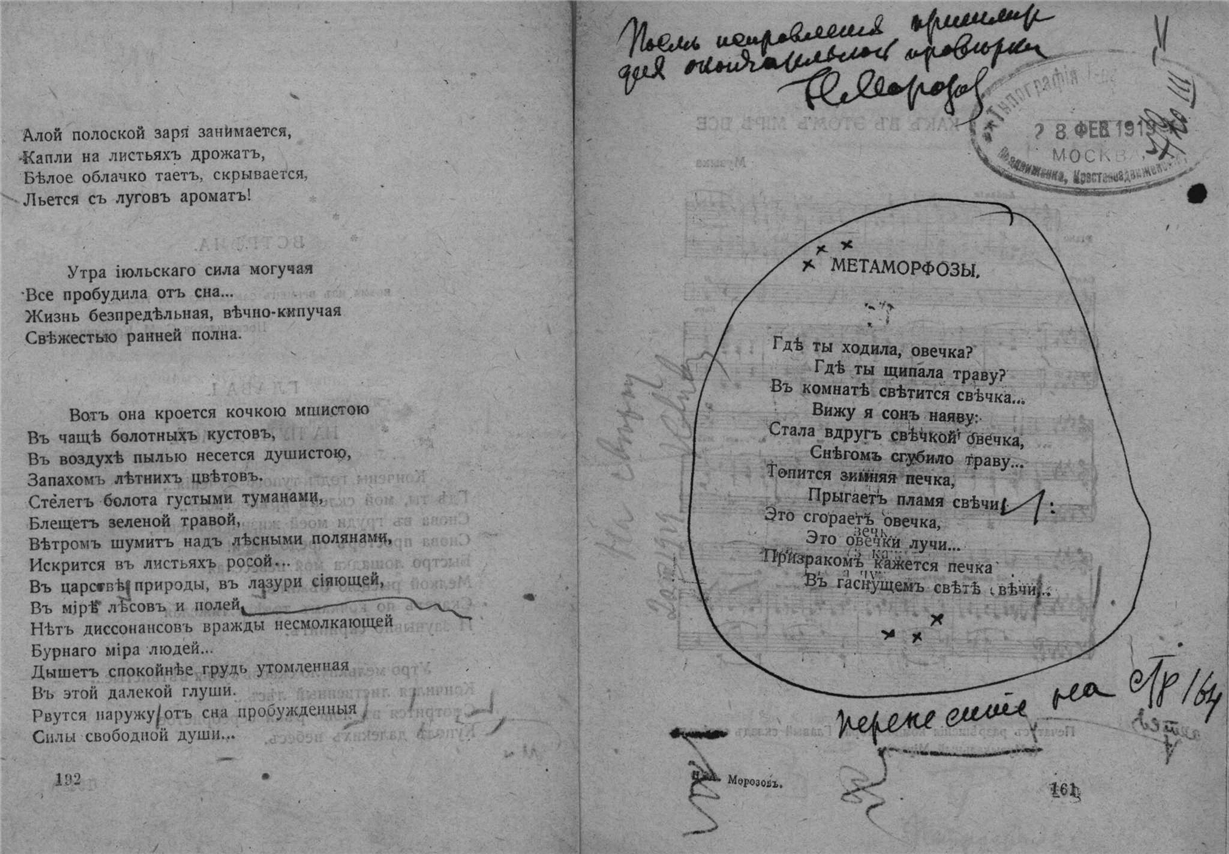 Алой полоской заря занимается,
Капли на листьяхъ дрожатъ,
Бѣлое облачко таетъ, скрывается,
Льется съ луговъ ароматъ!
Утра іюльскаго сила могучая
Все пробудила отъ сна...
Жизнь безпредѣльная, вѣчно-кипучая
Свѣжестью ранней полна.
Вотъ она кроется кочкою мшистою
Въ чащѣ болотныхъ кустовъ,
Въ воздухѣ пылью несется душистою,
Запахомъ лѣтнихъ цвѣтовъ.
Стелетъ болота густыми туманами,
Блещетъ зеленой травой,
Вѣтромъ шумитъ надъ лѣсными полянами,
Искрится въ листьяхъ росой...
Въ царствѣ природы, въ лазури сіяющей,
Въ мірѣ лѣсовъ и полей
Нѣтъ диссонансовъ вражды несмолкающей
Бурнаго міра людей...
Дышетъ спокойнѣе грудь утомленная
Въ этой далекой глуши.
Рвутся наружу отъ сна пробужденныя
Силы свободной души...
192
Послѣ исправленія пришлите
для окончательной провѣрки
Н Морозов
Типографія
28 ФЕВ 1919
МОСКВА
МЕТАМОРФОЗЫ.
Гдѣ ты ходила, овечка?
Гдѣ ты щипала траву?
Въ комнатѣ свѣтится свѣчка...
Вижу я сонъ наяву:
Стала вдругъ свѣчкой овечка,
Снѣгомъ сгубило траву...
Топится зимняя печка,
Прыгаетъ пламя свѣчи
Это сгораетъ овечка,
Это овечки лучи...
Призракомъ кажется печка
Въ гаснущемъ свѣтѣ свѣчи...
перенесите на стр 164
Морозовъ.
161